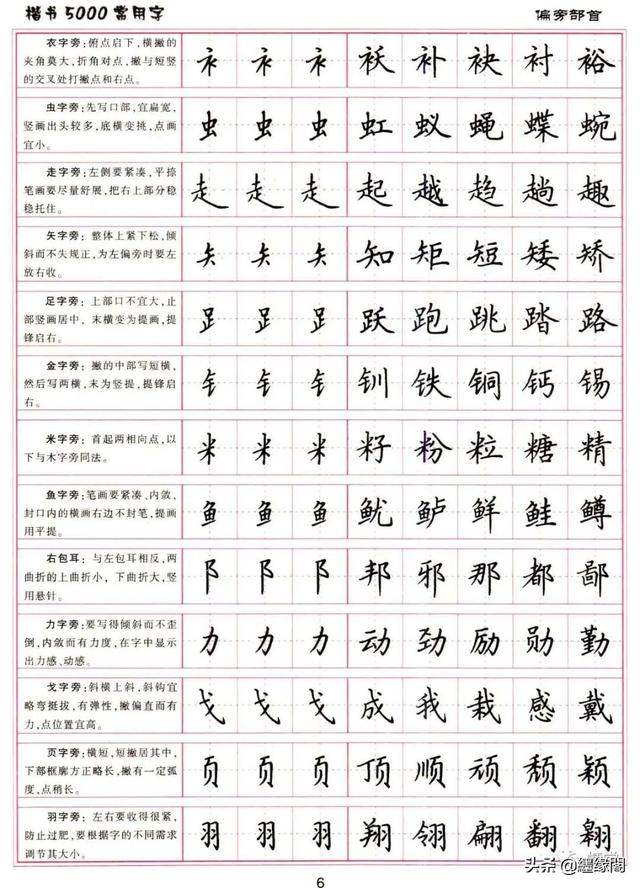 楷书5000常用字
偏旁部首
衣字旁：俯点启下，横撇的
夹角莫大，折角对点，撇与短竖
的交叉处打撇点和右点。
衤 衤 衤 袄 补 袂 衬 裕
虫字旁：先写口部，宜扁宽，
竖画出头较多，底横变挑，点画
宜小。
虫 虫 虫 虹 蚁 蝇 蝶 蜿
走字旁：左侧要紧凑，平捺
笔画要尽量舒展，把右上部分稳
稳托住。
走 走 走 起 越 趋 趟 趣
矢字旁：整体上紧下松，倾
斜而不失规正，为左偏旁时要左
放右收。
矢 矢 矢 知 矩 短 矮 矫
足字旁：上部口不宜大，止
部竖画居中，末横变为提画，提
锋启右。
𧾷 𧾷 𧾷 跃 跑 跳 踏 路
金字旁：撇的中部写短横，
然后写两横，末为竖提，提锋启
右。
钅 钅 钅 钏 铁 铜 钙 锡
米字旁：首起两相向点，以
下与木字旁同法。
米 米 米 籽 粉 粒 糖 精
鱼字旁：笔画要紧凑、内敛，
封口内的横画右边不封笔，提画
用平提。
鱼 鱼 鱼 鱿 鲈 鲜 鲑 鳟
右包耳：与左包耳相反，两
曲折的上曲折小，下曲折大，竖
用悬针。
阝 阝 阝 邦 邪 那 都 鄙
力字旁：要写得倾斜而不歪
倒，内敛而有力度，在字中显示
出力感、动感。
力 力 力 动 劲 励 勋 勤
戈字旁：斜横上斜，斜钩宜
略弯挺拔，有弹性，撇偏直而有
力，点位置宜高。
戈 戈 戈 成 我 栽 感 戴
页字旁：横短，短撇居其中，
下部框廓方正略长，撇有一定弧
度，点稍长。
页 页 页 顶 顺 顽 颓 颖
羽字旁：左右要收得很紧，
防止过肥，要根据字的不同需求
调节其大小。
羽 羽 羽 翔 翎 翩 翻 翱
6
头条@缠缘阁